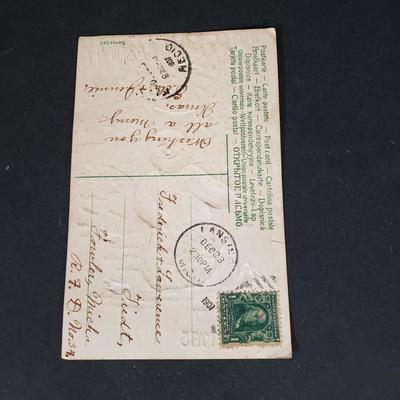 Postkarte — Carte postale — Post card — Cartolina postale
Briefkaart — Brefkort — Correspondenzkarte — Dopisnica
Dopisnice — Karta korespondencyjna — Levelezö-Lap
Unione postale universale - Weltpostverein - Union postale universelle
Tarjeta postal — Cartão postal — ОТКРЫТОЕ ПИСЬМО
Wishing you
all a merry
Xmas.
Jennie.
REC'D
Serie 540
LANSING
DEC 23
2 30 PM
MICH.
190
Fredrick & Lawrence
Fiedt,
Fowler, Mich.
R. F. D. No. 34